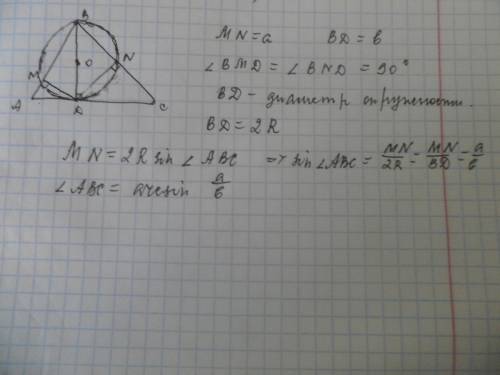 B
M
O
N
A
D
C
MN = a BD = b
∠BMD = ∠BND = 90°
BD - диаметр окружности.
BD = 2R
MN = 2R sin ∠ABC => sin ∠ABC = MN/2R = MN/BD = a/b
∠ABC = arcsin a/b